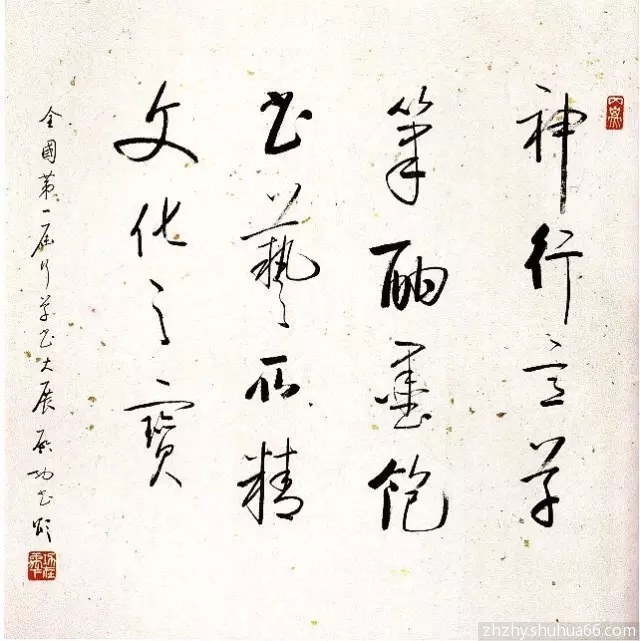 神行草
筆酣墨飽
書藝所精
文化之寶
全國第一屆行草書大展 啟功書頌
zhzhy.shuhua66.com